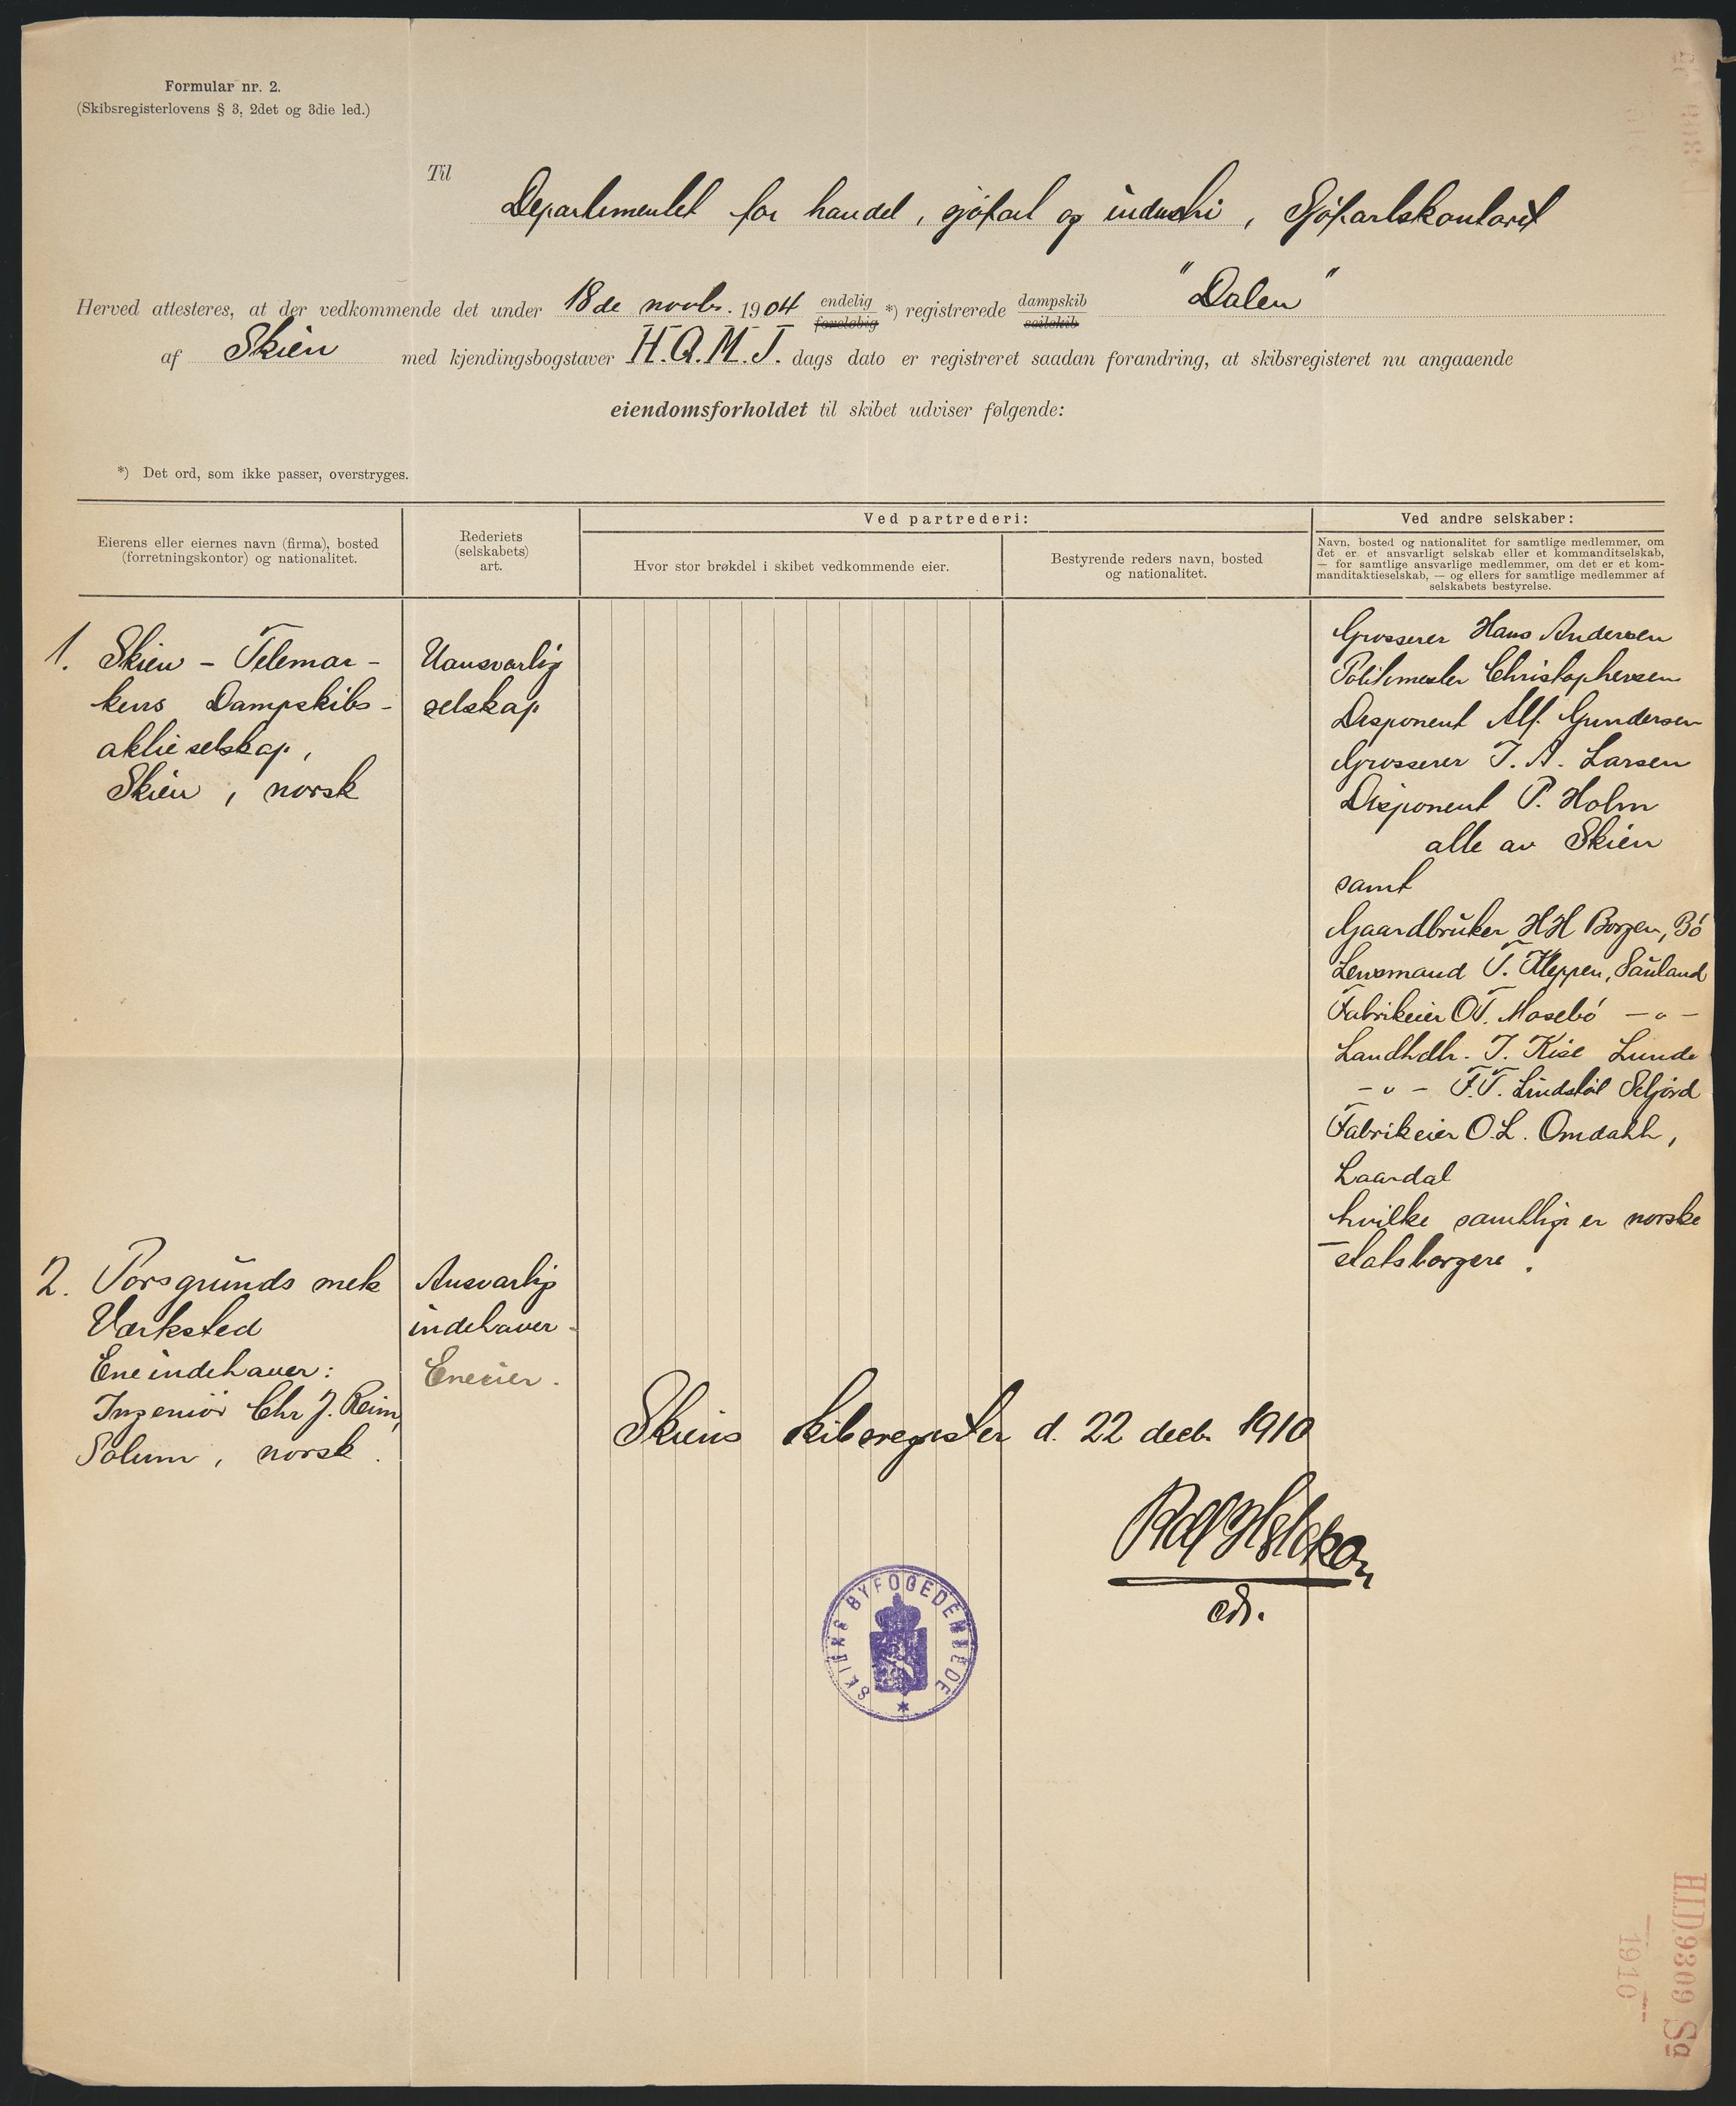 Formular nr. 2.
(Skibsregisterlovens § 3, 2det og 3die led.)
Til
Departementet for handel, sjøfart og industri, Sjøfartskontoret
Herved attesteres, at der vedkommende det under 18de novbr. 1904 endelig foreløbig *) registrerede dampskib seilskib "Dalen"
af Skien med kjendingsbogstaver H.Q.M.J. dags dato er registreret saadan forandring, at skibsregisteret nu angaaende
eiendomsforholdet til skibet udviser følgende:
*) Det ord, som ikke passer, overstryges.
Eierens eller eiernes navn (firma), bosted
(forretningskontor) og nationalitet.
Rederiets
(selskabets)
art.
Ved partrederi:
Hvor stor brøkdel i skibet vedkommende eier.
Bestyrende reders navn, bosted
og nationalitet.
Ved andre selskaber:
Navn, bosted og nationalitet for samtlige medlemmer, om
det er et ansvarligt selskab eller et kommanditselskab,
— for samtlige ansvarlige medlemmer, om det er et kom-
manditaktieselskab, — og ellers for samtlige medlemmer af
selskabets bestyrelse.
1. Skien - Telemar-
kens Dampskibs-
aktieselskap,
Skien, norsk
Uansvarlig
selskap
Grosserer Hans Andersen
Politimester Christophersen
Disponent Alf. Gundersen
Grosserer J. A. Larsen
Disponent P. Holm
alle av Skien
samt
Gaardbruker HH Borgen, Bö
Lensmand T. Kleppen, Sauland
Fabrikeier OT. Mosebö - " -
Landhdlr. J. Kise Lunde
- " - F.T. Lindstöl Seljord
Fabrikeier O.L. Omdahl,
Laardal
hvilke samtlige er norske
statsborgere.
2. Porsgrunds mek
Værksted
Eneindehaver:
Ingeniör Chr J. Reim,
Solum, norsk.
Ansvarlig
indehaver
Eneeier.
Skiens skibsregister d. 22 decbr 1910
SKIENS BYFOGEDEMBEDE
HID9309 Sa
1910